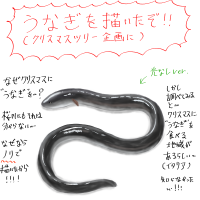 うなぎを描いたぞ!!
(クリスマスツリー企画に)
売なしver.
なぜクリスマスに
うなぎを…?
なぜなら
ノリで
描いたから
!!!!
しかし
調べてみると
クリスマスに
うなぎを
食べる
地域が
あるらしい…
(イタリア)
知らなかった…!!!